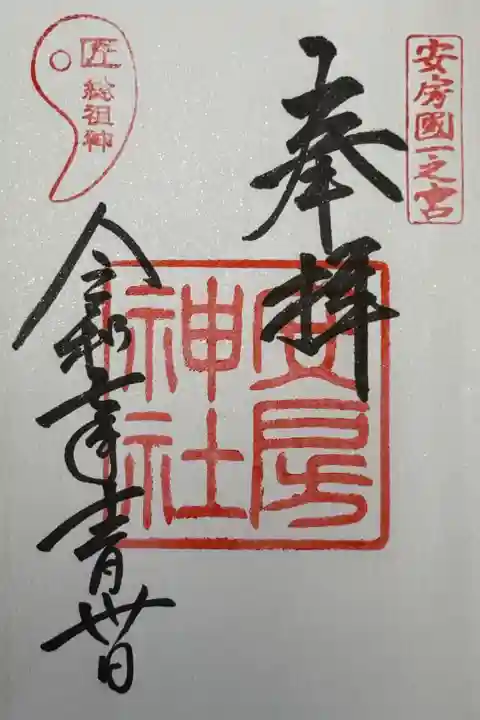 安房國一之宮
奉拝
安房
神社
匠
総祖神
令和七年十一月